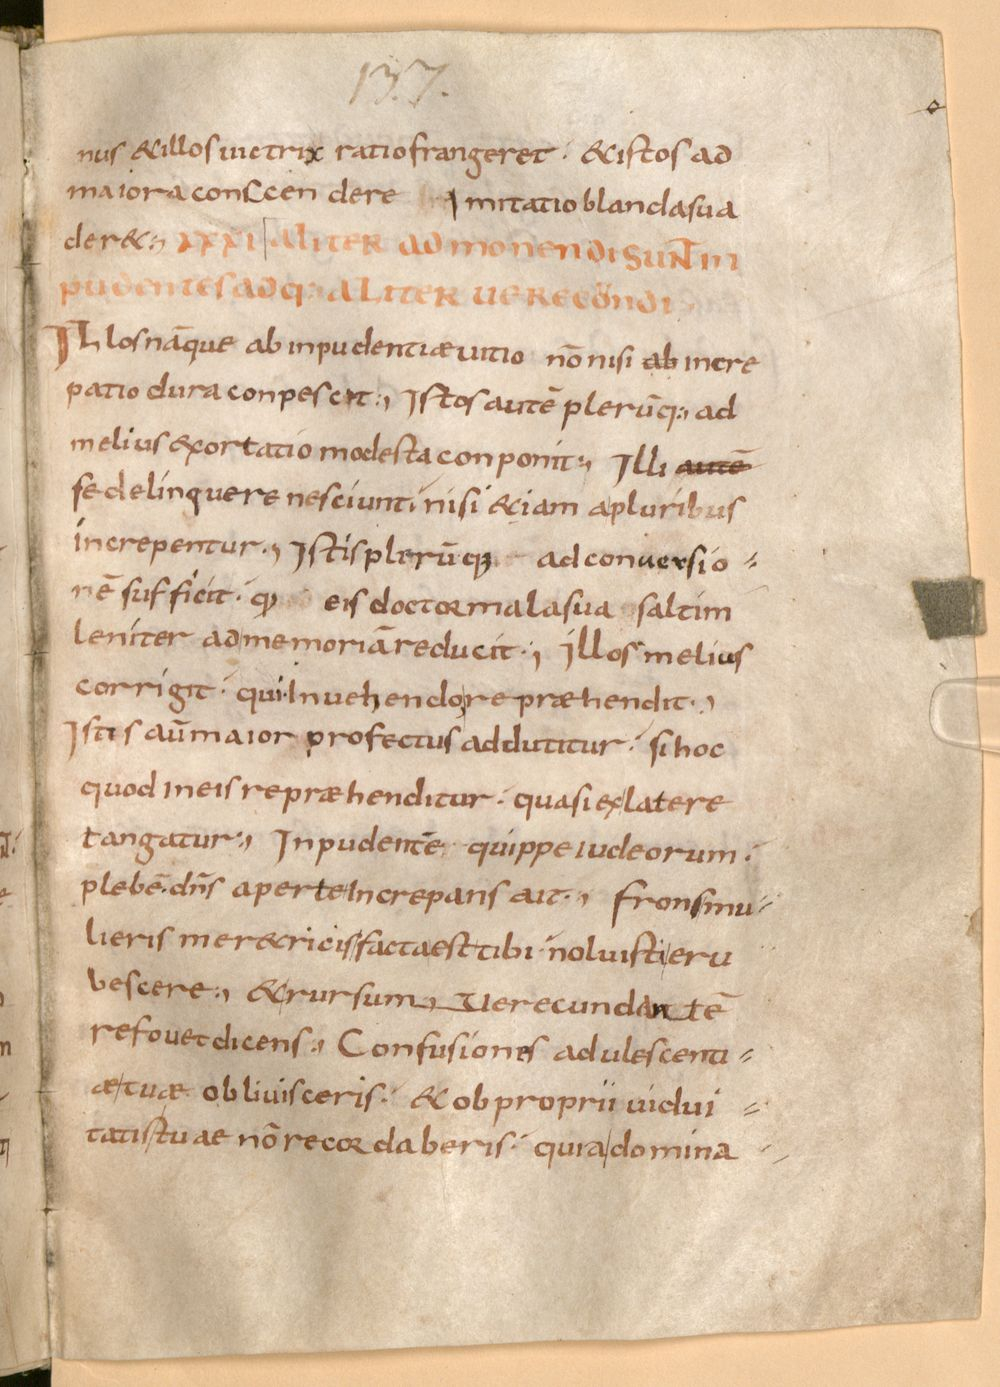 137.
nus & illos uictrix ratio frangeret · & istos ad
maiora conscendere Imitatio blanda sua
der&., XXXI ALITER admonendi SUNT in
pudentes adq: ALITER UERECŪndi
Illos nāque ab inpudentiæ uitio nō nisi ab incre
patio dura conpescit., Istos autē plerūq:, ad
melius exortatio modesta conponit., Illi autē
se delinquere nesciunt· nisi &iam a pluribus
increpentur., Istis plerūq; ad conuersio-
nē sufficit· q; eis doctor mala sua saltim
leniter ad memoriā reducit., Illos melius
corrigit· qui Inuehendo repræhendit.,
Istis aūm maior profectus addutitur· si hoc
quod in eis repræhenditur· quasi ex latere
tangatur., Inpudentē quippe iudeorum·
plebē· dn̄s aperte Increpans ait., frons mu-
lieris mer&ricis facta est tibi· noluisti eru
bescere., & rursum, Uerecundantē
refouet dicens., Confusiones adulescenti-
æ tuæ obliuisceris· & obproprii uidui-
tatis tuae nō recordaberis· quia domina-